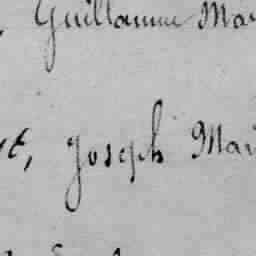 , Guillaume Ma
t, Joseph Mai